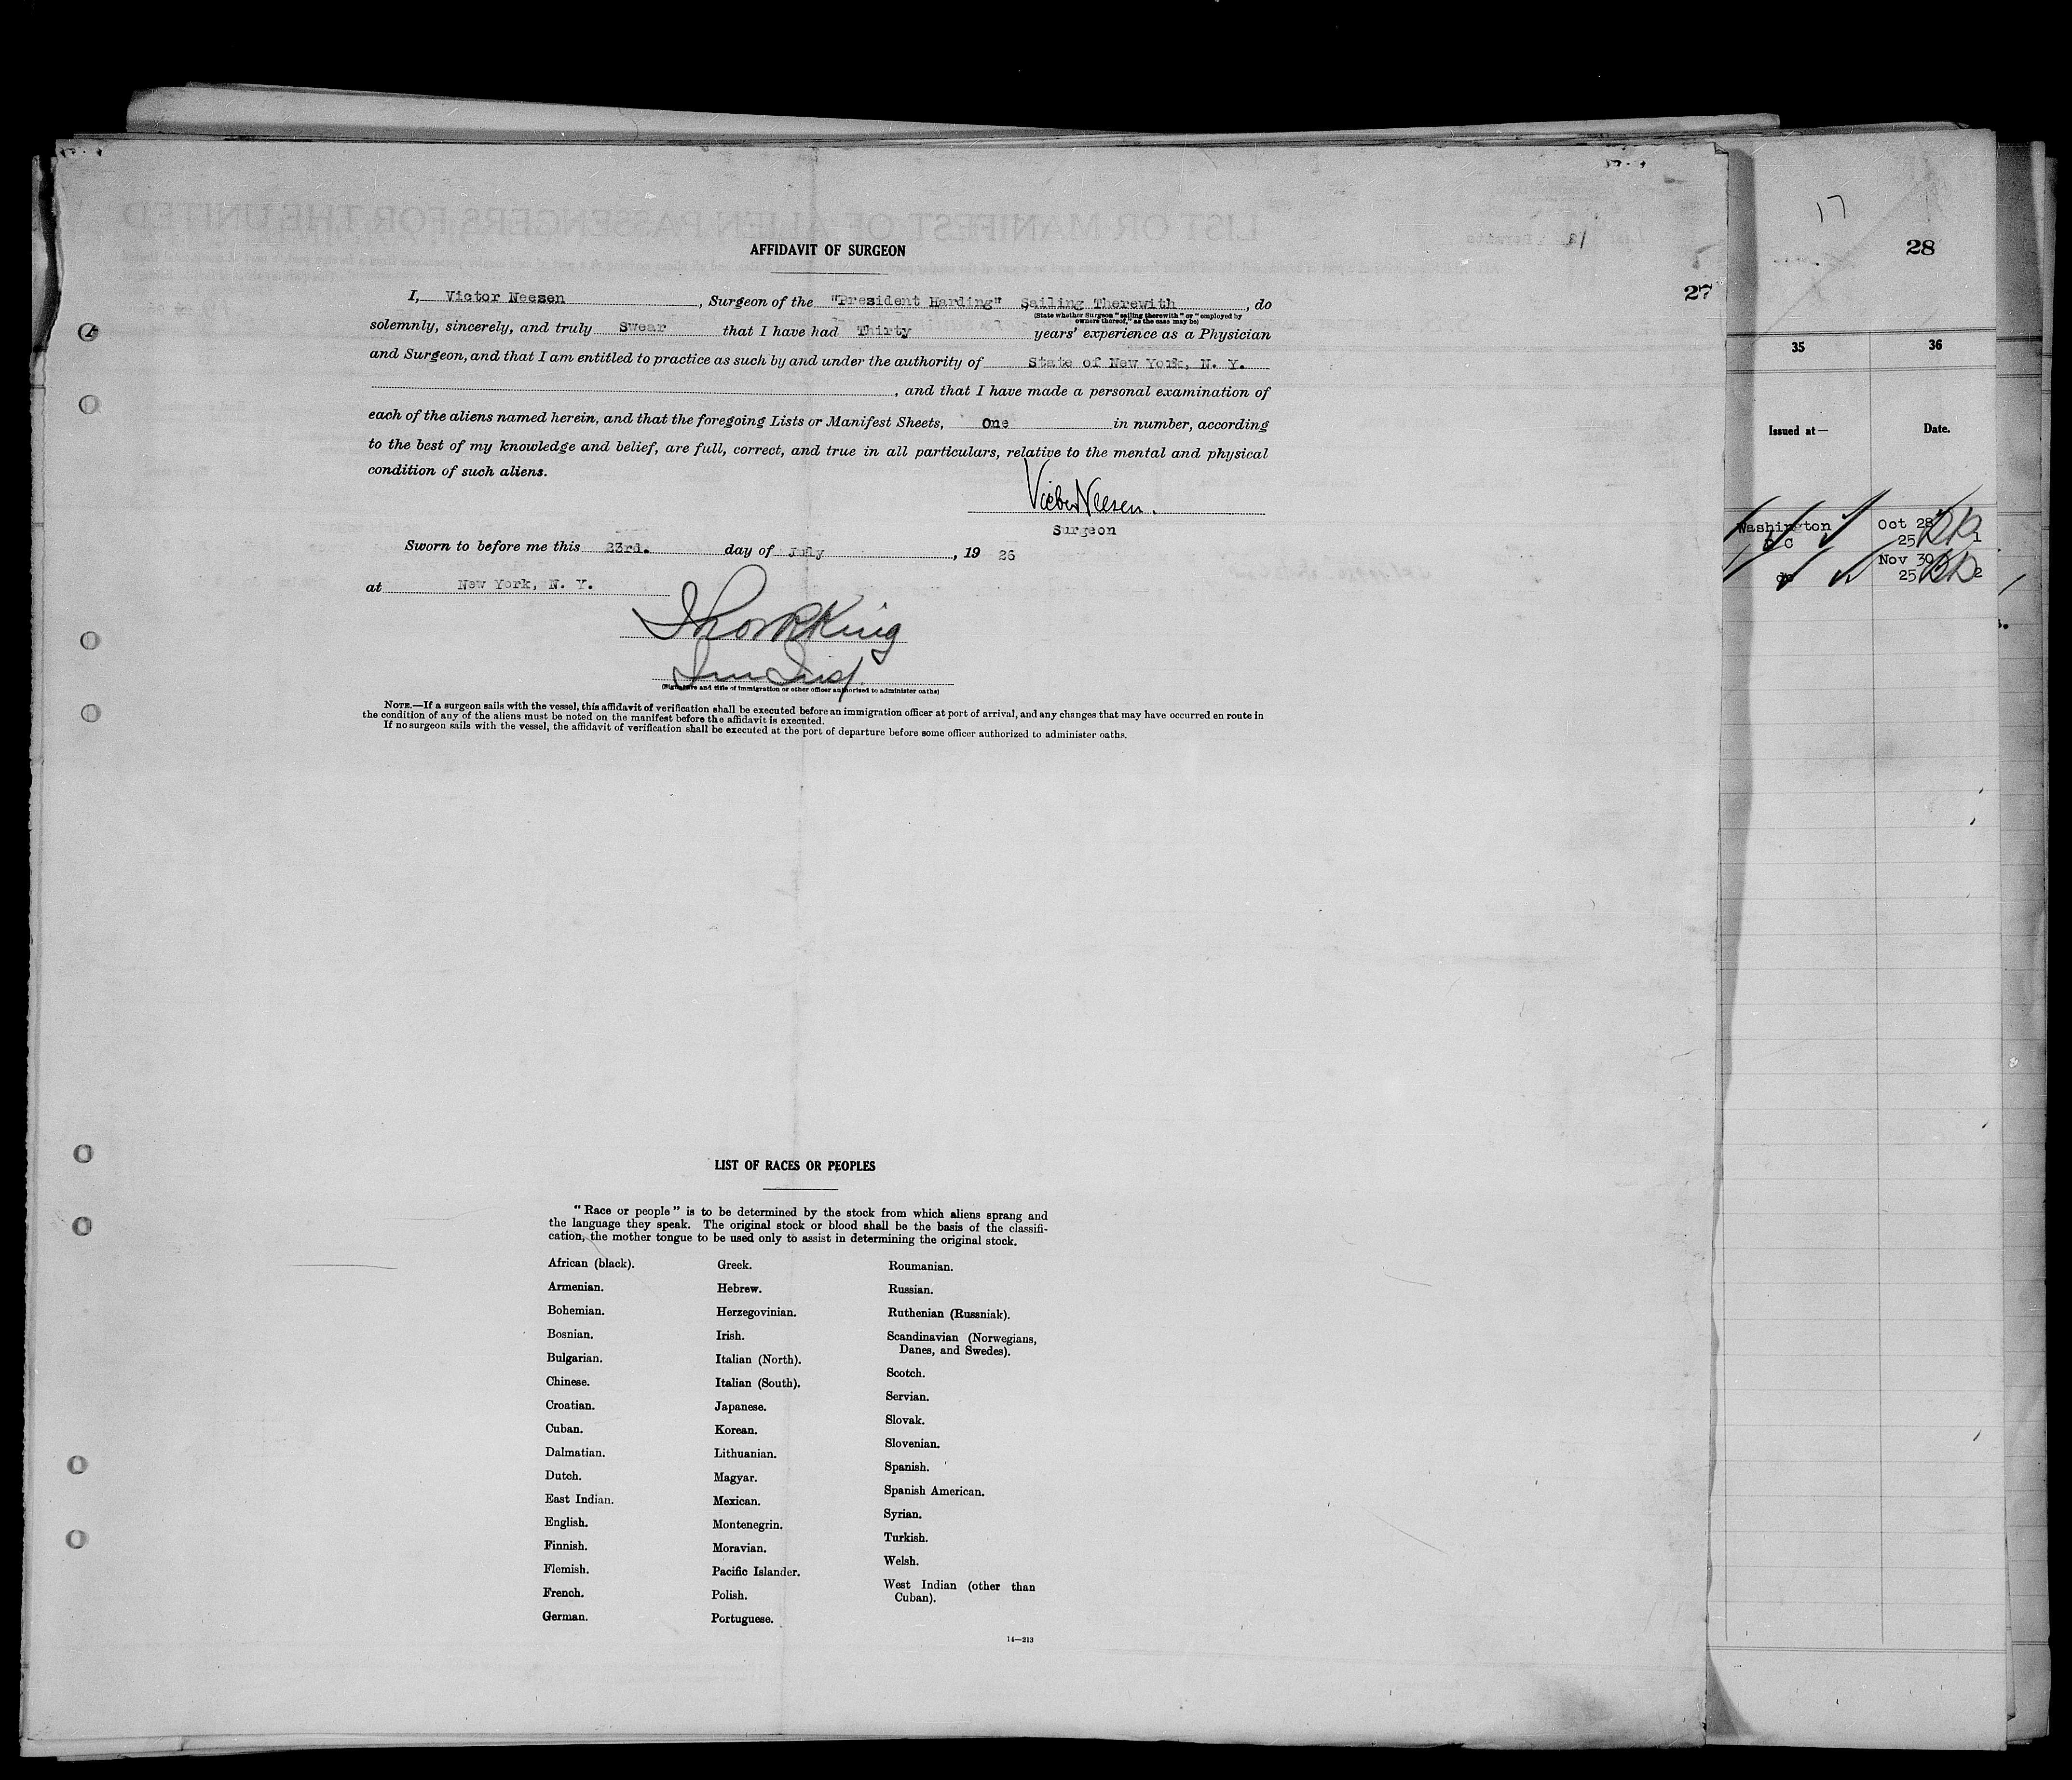 AFFIDAVIT OF SURGEON
27
I, Victor Neesen , Surgeon of the "President Harding" Sailing Therewith , do
(State whether Surgeon "sailing therewith" or "employed by
owners thereof," as the case may be)
solemnly, sincerely, and truly Swear that I have had Thirty years' experience as a Physician
and Surgeon, and that I am entitled to practice as such by and under the authority of State of New York, N. Y.
, and that I have made a personal examination of
each of the aliens named herein, and that the foregoing Lists or Manifest Sheets, One in number, according
to the best of my knowledge and belief, are full, correct, and true in all particulars, relative to the mental and physical
condition of such aliens.
Victor Neesen.
Surgeon
Sworn to before me this 23rd. day of July , 19 26
at New York, N. Y.
King
(Signature and title of immigration or other officer authorized to administer oaths)
NOTE.—If a surgeon sails with the vessel, this affidavit of verification shall be executed before an immigration officer at port of arrival, and any changes that may have occurred en route in
the condition of any of the aliens must be noted on the manifest before the affidavit is executed.
If no surgeon sails with the vessel, the affidavit of verification shall be executed at the port of departure before some officer authorized to administer oaths.
LIST OF RACES OR PEOPLES
"Race or people" is to be determined by the stock from which aliens sprang and
the language they speak. The original stock or blood shall be the basis of the classifi-
cation, the mother tongue to be used only to assist in determining the original stock.
African (black).
Armenian.
Bohemian.
Bosnian.
Bulgarian.
Chinese.
Croatian.
Cuban.
Dalmatian.
Dutch.
East Indian.
English.
Finnish.
Flemish.
French.
German.
Greek.
Hebrew.
Herzegovinian.
Irish.
Italian (North).
Italian (South).
Japanese.
Korean.
Lithuanian.
Magyar.
Mexican.
Montenegrin.
Moravian.
Pacific Islander.
Polish.
Portuguese.
Roumanian.
Russian.
Ruthenian (Russniak).
Scandinavian (Norwegians,
Danes, and Swedes).
Scotch.
Servian.
Slovak.
Slovenian.
Spanish.
Spanish American.
Syrian.
Turkish.
Welsh.
West Indian (other than
Cuban).
14—213
17
28
35 36
Issued at— Date.
Washington Oct 28
D C 25 1
Nov 30
do 25 2